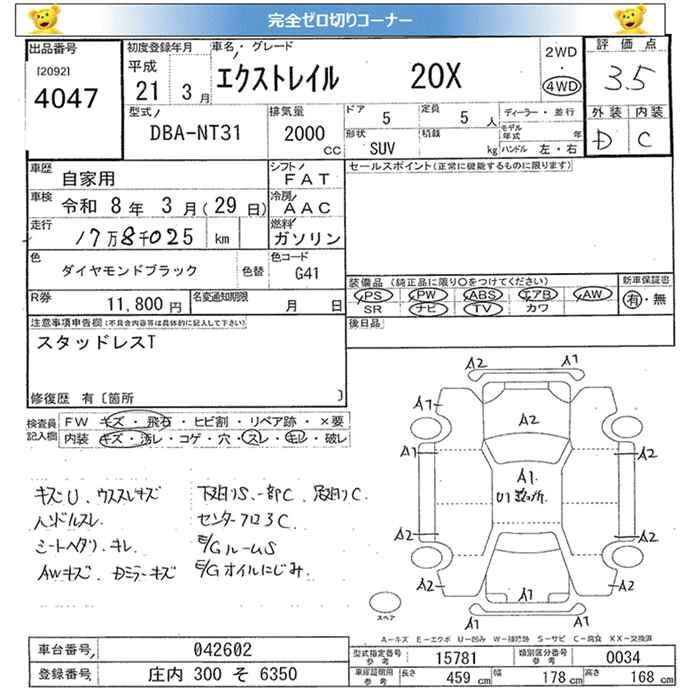 完全ゼロ切りコーナー
出品番号 初度登録年月 車名・グレード 2WD 評価点
[2092] 平成 エクストレイル 20X ・ 3.5
4047 21 3月 4WD 外装 内装
型式 排気量 ドア 5 定員 5人 ディーラー・並行 D C
DBA-NT31 2000 CC 形状 SUV 積載 kg モデル年式 年
ハンドル 左・右
車歴 自家用 シフト FAT セールスポイント(正常に機能するものに限ります)
車検 令和 8年 3月(29日) 冷房 AAC
走行 17万8千025 km 燃料 ガソリン
色 ダイヤモンドブラック 色替 色コード G41
装備品(純正品に限り○をつけてください) 新車保証書
R券 11,800円 名変通知期限 月 日 PS PW ABS エアB AW 有・無
SR ナビ TV カワ
注意事項申告欄(不具合内容等は具体的に記入して下さい) 後日品
スタッドレスT
修復歴 有〔箇所 〕
検査員 FW キズ・飛石・ヒビ割・リペア跡・×要
記入欄 内装 キズ・汚レ・コゲ・穴・スレ・キレ・破レ
A2 A1
A1 A2 A1
A1 A1 A1
U1数ヶ所
A2 A2
A2 A1 A2
A1
キズU、ウススレキズ 下廻りS、一部C、足廻りC
ハンドルスレ センターフロアC
シートヘタリ・キレ E/GルームS
AWキズ、Dミラーキズ E/Gオイルにじみ
スペア
A-キズ E-エクボ U-凹み W-補修跡 S-サビ C-腐食 XX-交換済
車台番号 042602 型式指定番号 参考 15781 類別区分番号 参考 0034
登録番号 庄内 300 そ 6350 車庫証明用 参考 長さ 459 cm 幅 178 cm 高さ 168 cm